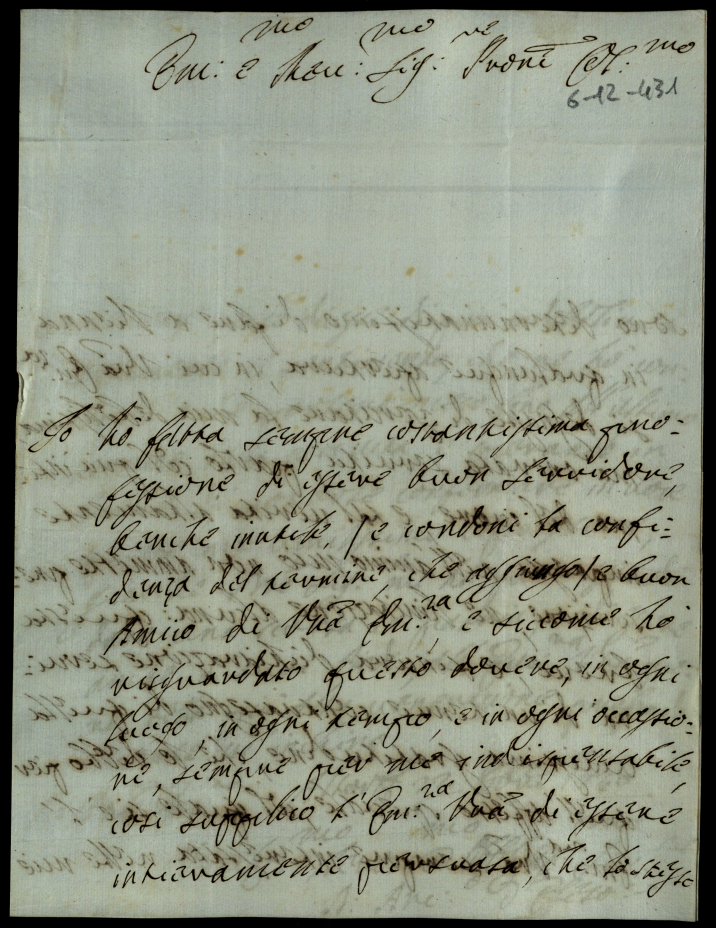 Em:mo e Rev:mo Sig:re Prone Col:mo
6-12-431
Io hò fatta sempre costantissima pro=
fessione di essere buon servidore,
benche inutile, /e condoni la confi=
denza del termine, che aggiungo/ e buon
Amico di Vrā Em:za, e siccome hò
risguardato questo dovere, in ogni
luogo, in ogni tempo, e in ogni occasio-
ne, sempre per me indispensabile,
così supplico l'Em:za Vrā di essere
intieramente persuasa, che lo stesso